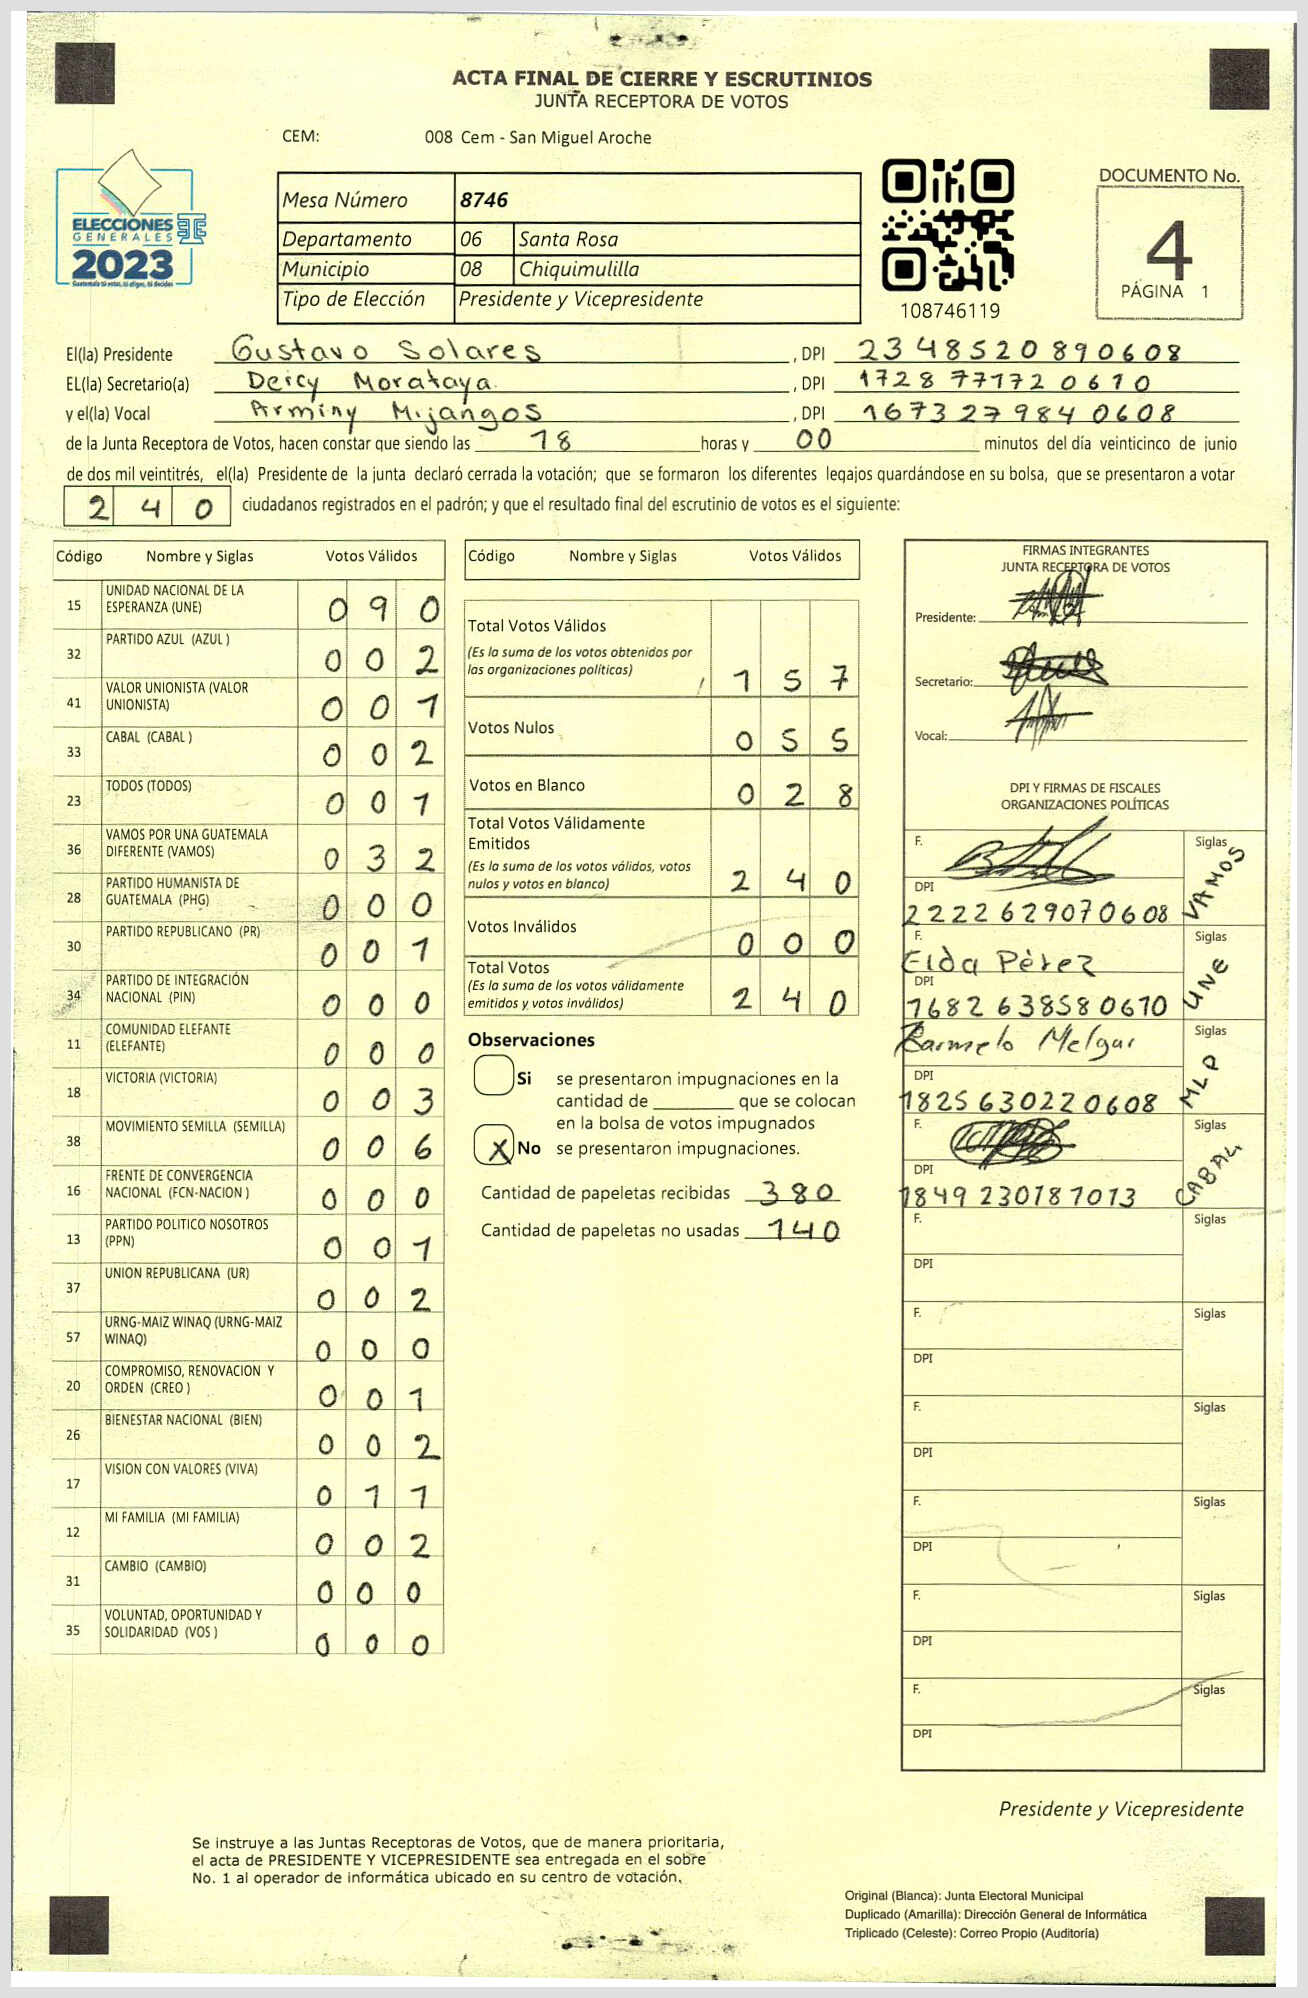 ACTA FINAL DE CIERRE Y ESCRUTINIOS
JUNTA RECEPTORA DE VOTOS
CEM: 008 Cem - San Miguel Aroche
ELECCIONES
GENERALES
2023
Guatemala tú votas, tú eliges, tú decides
Mesa Número 8746
Departamento 06 Santa Rosa
Municipio 08 Chiquimulilla
Tipo de Elección Presidente y Vicepresidente
108746119
DOCUMENTO No.
4
PÁGINA 1
El(la) Presidente Gustavo Solares , DPI 2348520890608
EL(la) Secretario(a) Dercy Morataya , DPI 1728771720610
y el(la) Vocal Arminy Mijangos , DPI 1673279840608
de la Junta Receptora de Votos, hacen constar que siendo las 18 horas y 00 minutos del día veinticinco de junio
de dos mil veintitrés, el(la) Presidente de la junta declaró cerrada la votación; que se formaron los diferentes legajos quardándose en su bolsa, que se presentaron a votar
240 ciudadanos registrados en el padrón; y que el resultado final del escrutinio de votos es el siguiente:
Código Nombre y Siglas Votos Válidos
15 UNIDAD NACIONAL DE LA ESPERANZA (UNE) 090
32 PARTIDO AZUL (AZUL ) 002
41 VALOR UNIONISTA (VALOR UNIONISTA) 001
33 CABAL (CABAL ) 002
23 TODOS (TODOS) 001
36 VAMOS POR UNA GUATEMALA DIFERENTE (VAMOS) 032
28 PARTIDO HUMANISTA DE GUATEMALA (PHG) 000
30 PARTIDO REPUBLICANO (PR) 001
34 PARTIDO DE INTEGRACIÓN NACIONAL (PIN) 000
11 COMUNIDAD ELEFANTE (ELEFANTE) 000
18 VICTORIA (VICTORIA) 003
38 MOVIMIENTO SEMILLA (SEMILLA) 006
16 FRENTE DE CONVERGENCIA NACIONAL (FCN-NACION ) 000
13 PARTIDO POLITICO NOSOTROS (PPN) 001
37 UNION REPUBLICANA (UR) 002
57 URNG-MAIZ WINAQ (URNG-MAIZ WINAQ) 000
20 COMPROMISO, RENOVACION Y ORDEN (CREO ) 001
26 BIENESTAR NACIONAL (BIEN) 002
17 VISION CON VALORES (VIVA) 011
12 MI FAMILIA (MI FAMILIA) 002
31 CAMBIO (CAMBIO) 000
35 VOLUNTAD, OPORTUNIDAD Y SOLIDARIDAD (VOS ) 000
Código Nombre y Siglas Votos Válidos
Total Votos Válidos
(Es la suma de los votos obtenidos por
las organizaciones políticas) 157
Votos Nulos 055
Votos en Blanco 028
Total Votos Válidamente
Emitidos
(Es la suma de los votos válidos, votos
nulos y votos en blanco) 240
Votos Inválidos 000
Total Votos
(Es la suma de los votos válidamente
emitidos y votos inválidos) 240
Observaciones
Si se presentaron impugnaciones en la
cantidad de ________ que se colocan
en la bolsa de votos impugnados
X No se presentaron impugnaciones.
Cantidad de papeletas recibidas 380
Cantidad de papeletas no usadas 140
FIRMAS INTEGRANTES
JUNTA RECEPTORA DE VOTOS
Presidente:
Secretario:
Vocal:
DPI Y FIRMAS DE FISCALES
ORGANIZACIONES POLÍTICAS
F. Siglas VAMOS
DPI
2222629070608
F. Elda Pérez Siglas UNE
DPI
1682638580610
Carmelo Melgar Siglas MLP
DPI
1825630220608
F. Siglas CABAL
DPI
1849230181013
F. Siglas
DPI
F. Siglas
DPI
F. Siglas
DPI
F. Siglas
DPI
F. Siglas
DPI
F. Siglas
DPI
Presidente y Vicepresidente
Se instruye a las Juntas Receptoras de Votos, que de manera prioritaria,
el acta de PRESIDENTE Y VICEPRESIDENTE sea entregada en el sobre
No. 1 al operador de informática ubicado en su centro de votación.
Original (Blanca): Junta Electoral Municipal
Duplicado (Amarilla): Dirección General de Informática
Triplicado (Celeste): Correo Propio (Auditoría)